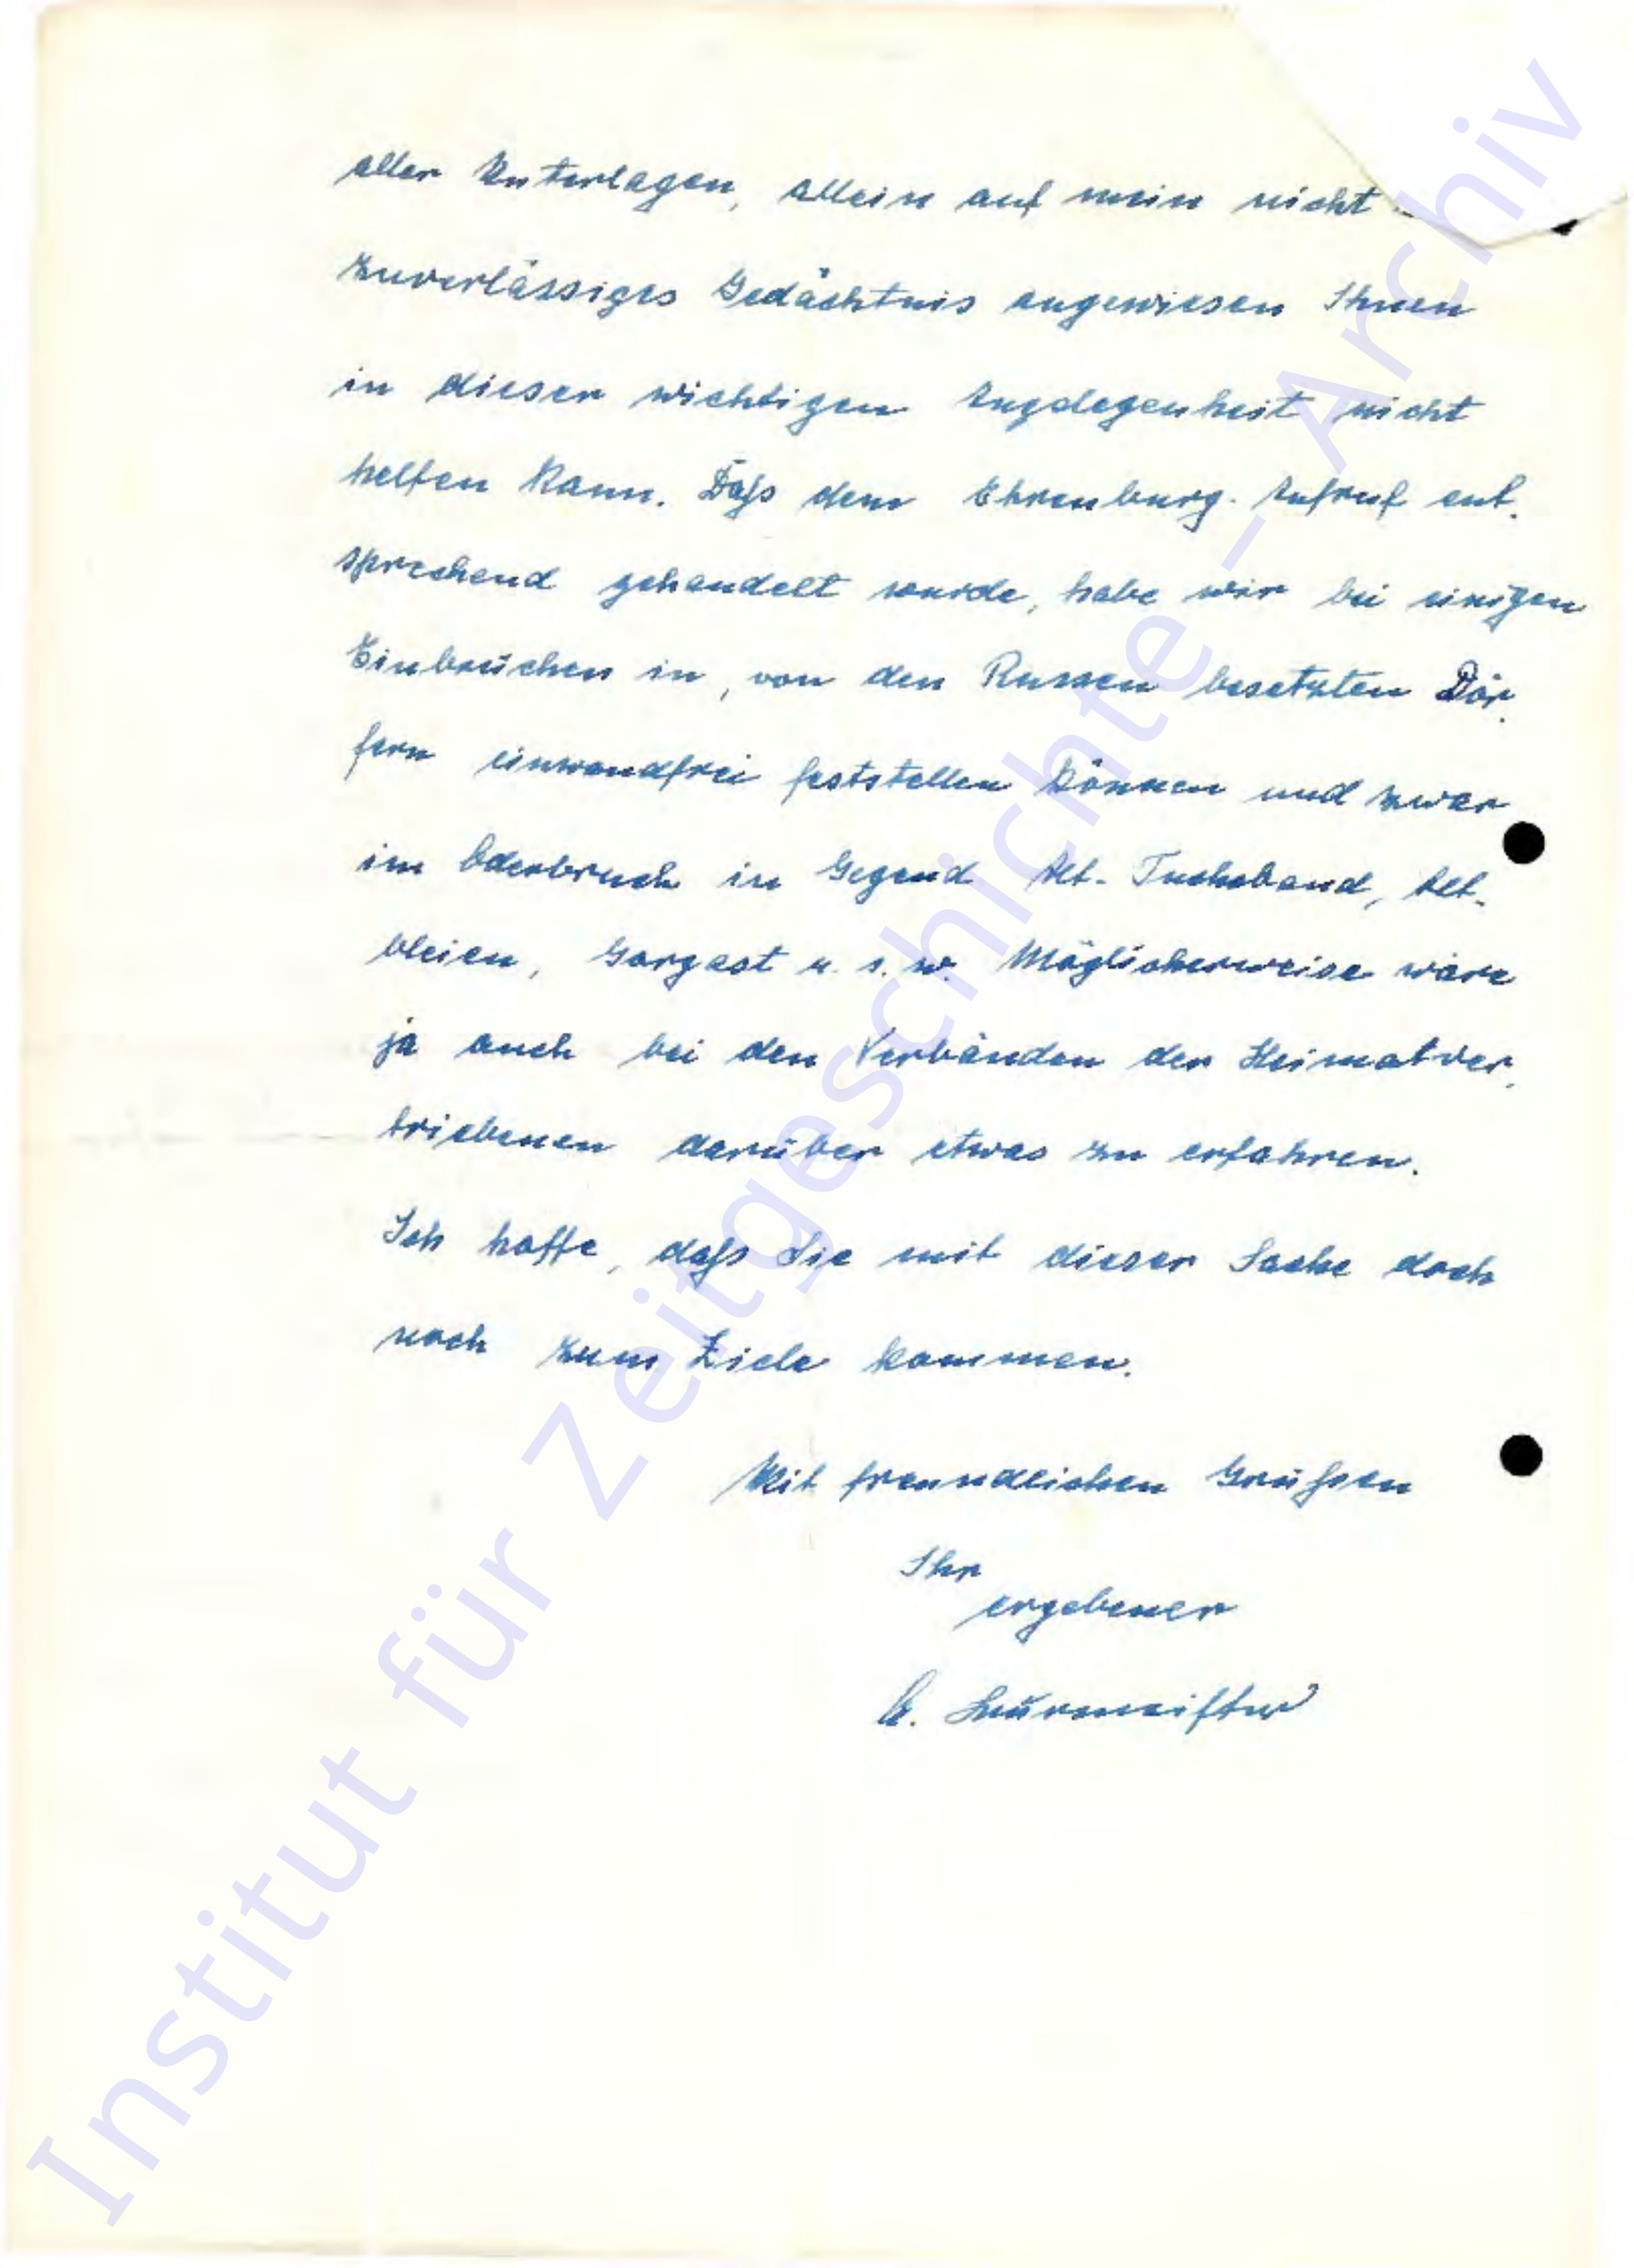 aller Unterlagen, allein auf mein nicht
zuverlässiges Gedächtnis angewiesen Ihnen
in dieser wichtigen Angelegenheit nicht
helfen kann. Daß dem Ehrenburg-Aufruf ent-
sprechend gehandelt wurde, habe wir bei einigen
Einbrüchen in, von den Russen besetzten Dör-
fern einwandfrei feststellen können und zwar
im Oderbruch in Gegend Alt-Tucheband, Alt-
bleien, Gorgast u. s. w. Möglicherweise wäre
ja auch bei den Verbänden der Heimatver-
triebenen darüber etwas zu erfahren.
Ich hoffe, daß Sie mit dieser Sache doch
noch zum Ziele kommen.
Mit freundlichen Grüßen
Ihr
ergebener
Institut für Zeitgeschichte - Archiv